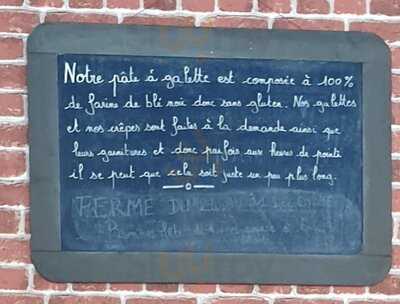 Notre pâte à galette est composée à 100%
de farine de blé noir donc sans gluten. Nos galettes
et nos crêpes sont faites à la demande ainsi que
leurs garnitures et donc parfois aux heures de pointe
il se peut que cela soit juste un peu plus long.
FERME